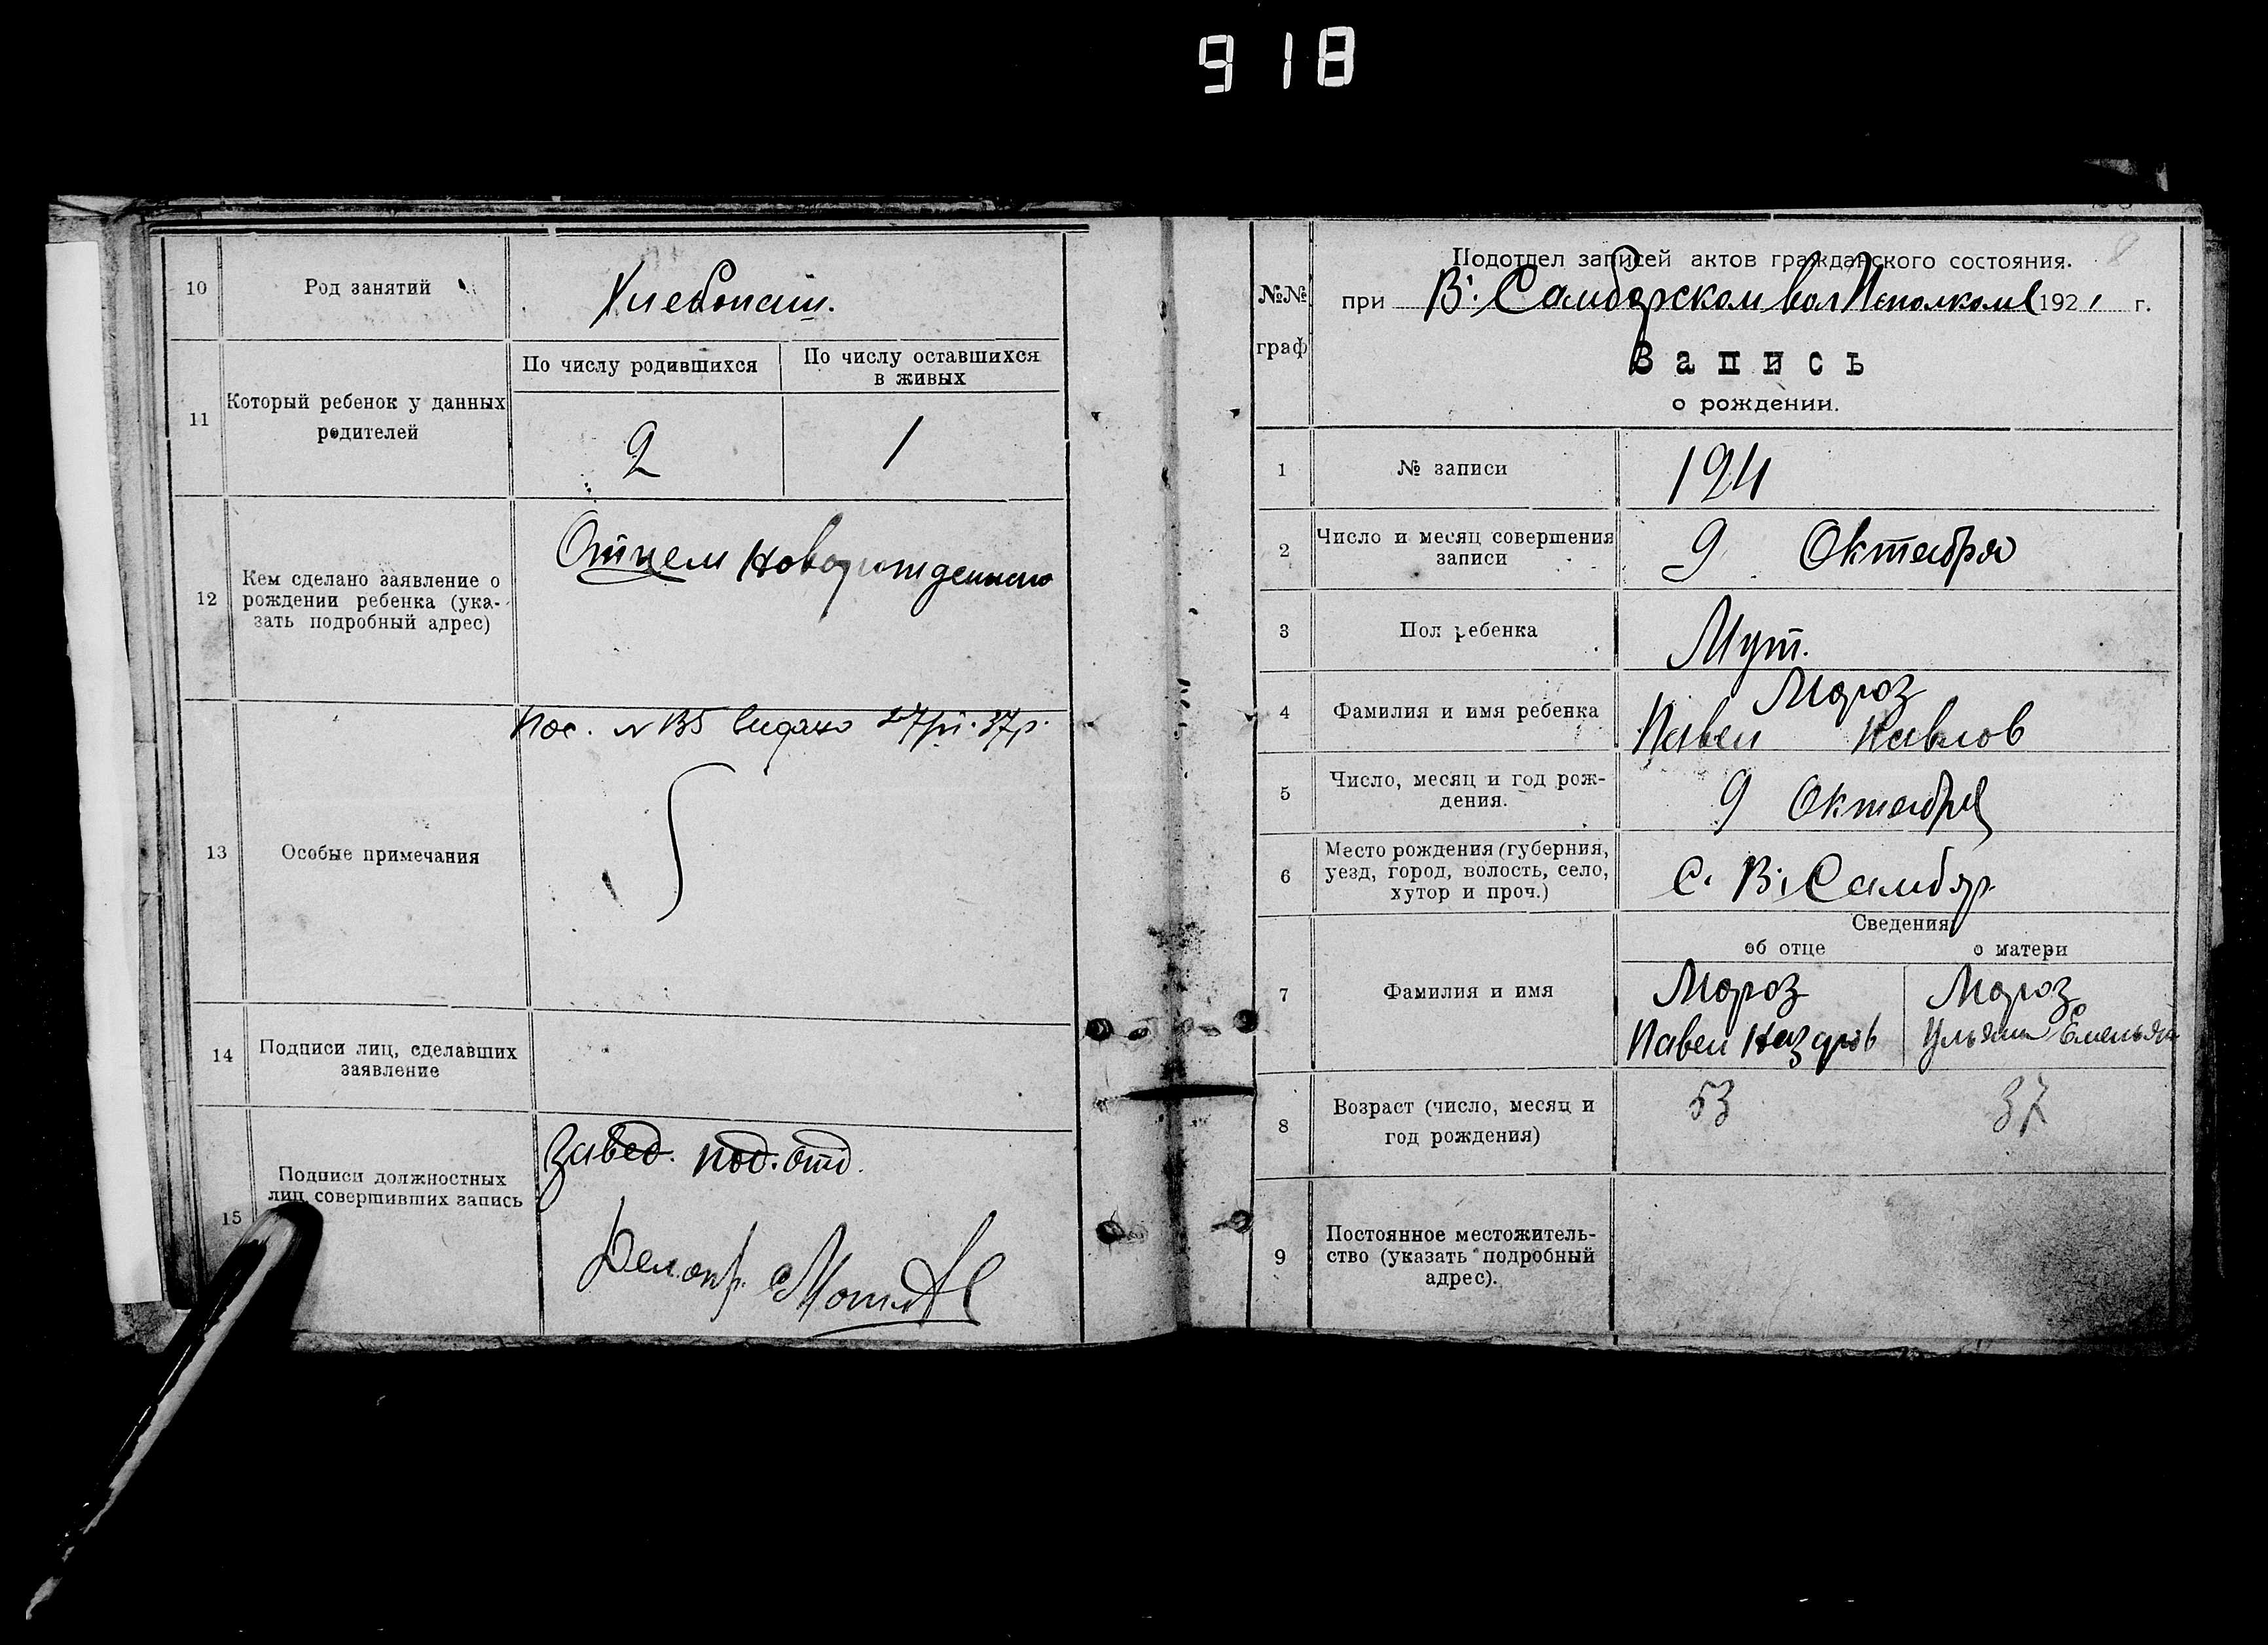 918
10 Род занятий Хлебопаш.
11 Который ребенок у данных родителей
По числу родившихся
По числу оставшихся
в живых
2 1
12 Кем сделано заявление о
рождении ребенка (ука-
зать подробный адрес)
Отцем новорожденного
13 Особые примечания
Пос. № 135 видано 27/VI-37р.
14 Подписи лиц, сделавших
заявление
15 Подписи должностных
лиц совершивших запись
Завед. под. отд.
Делопр.
№№
граф
Подотдел записей актов гражданского состояния.
при В. Самборском вол Исполкоме 1921 г.
Запись
о рождении.
1 № записи 194
2 Число и месяц совершения
записи
9 Октября
3 Пол ребенка Муж.
4 Фамилия и имя ребенка
Мороз
Павел Павлов
5 Число, месяц и год рож-
дения.
9 Октября
6 Место рождения (губерния,
уезд, город, волость, село,
хутор и проч.)
С. В. Самбор.
Сведения
об отце о матери
7 Фамилия и имя
Мороз Мороз
Павел Назаров Ульяна Емельян
8 Возраст (число, месяц и
год рождения)
53 37
9 Постоянное местожитель-
ство (указать подробный
адрес).